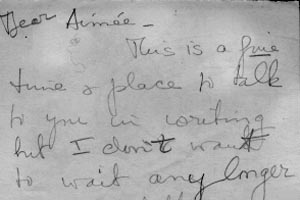 Dear Aimée –
This is a fine
time & place to talk
to you in writing
but I don't want
to wait any longer